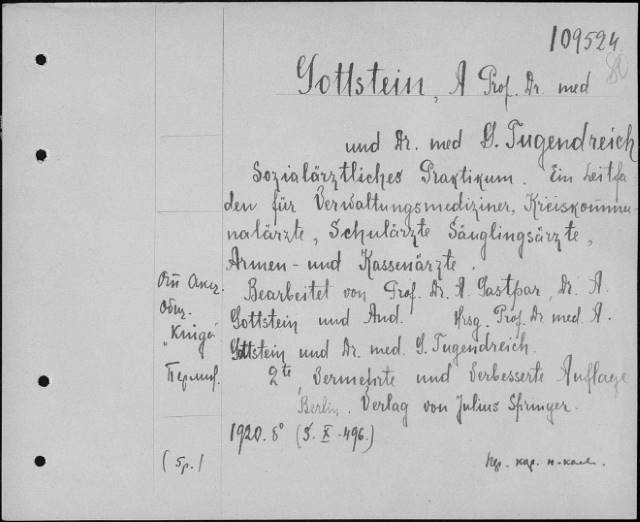 109524
Gottstein, A Prof. Dr. med
und Dr. med G. Tugendreich
Sozialärztliches Praktikum. Ein Leitfa
den für Verwaltungsmediziner, Kreiskommu-
nalärzte, Schulärzte Säuglingsärzte,
Armen- und Kassenärzte.
Bearbeitet von Prof. Dr. A. Gastpar, Dr. A.
Gottstein und And. Hrsg. Prof. Dr med. A.
Gottstein und Dr. med. G. Tugendreich.
2te, Vermehrte und Verbesserte Auflage
Berlin. Verlag von Julius Springer.
1920. 8° (S. X -496.)
Отп Акц.
Общ.
„Книга"
(5р.)